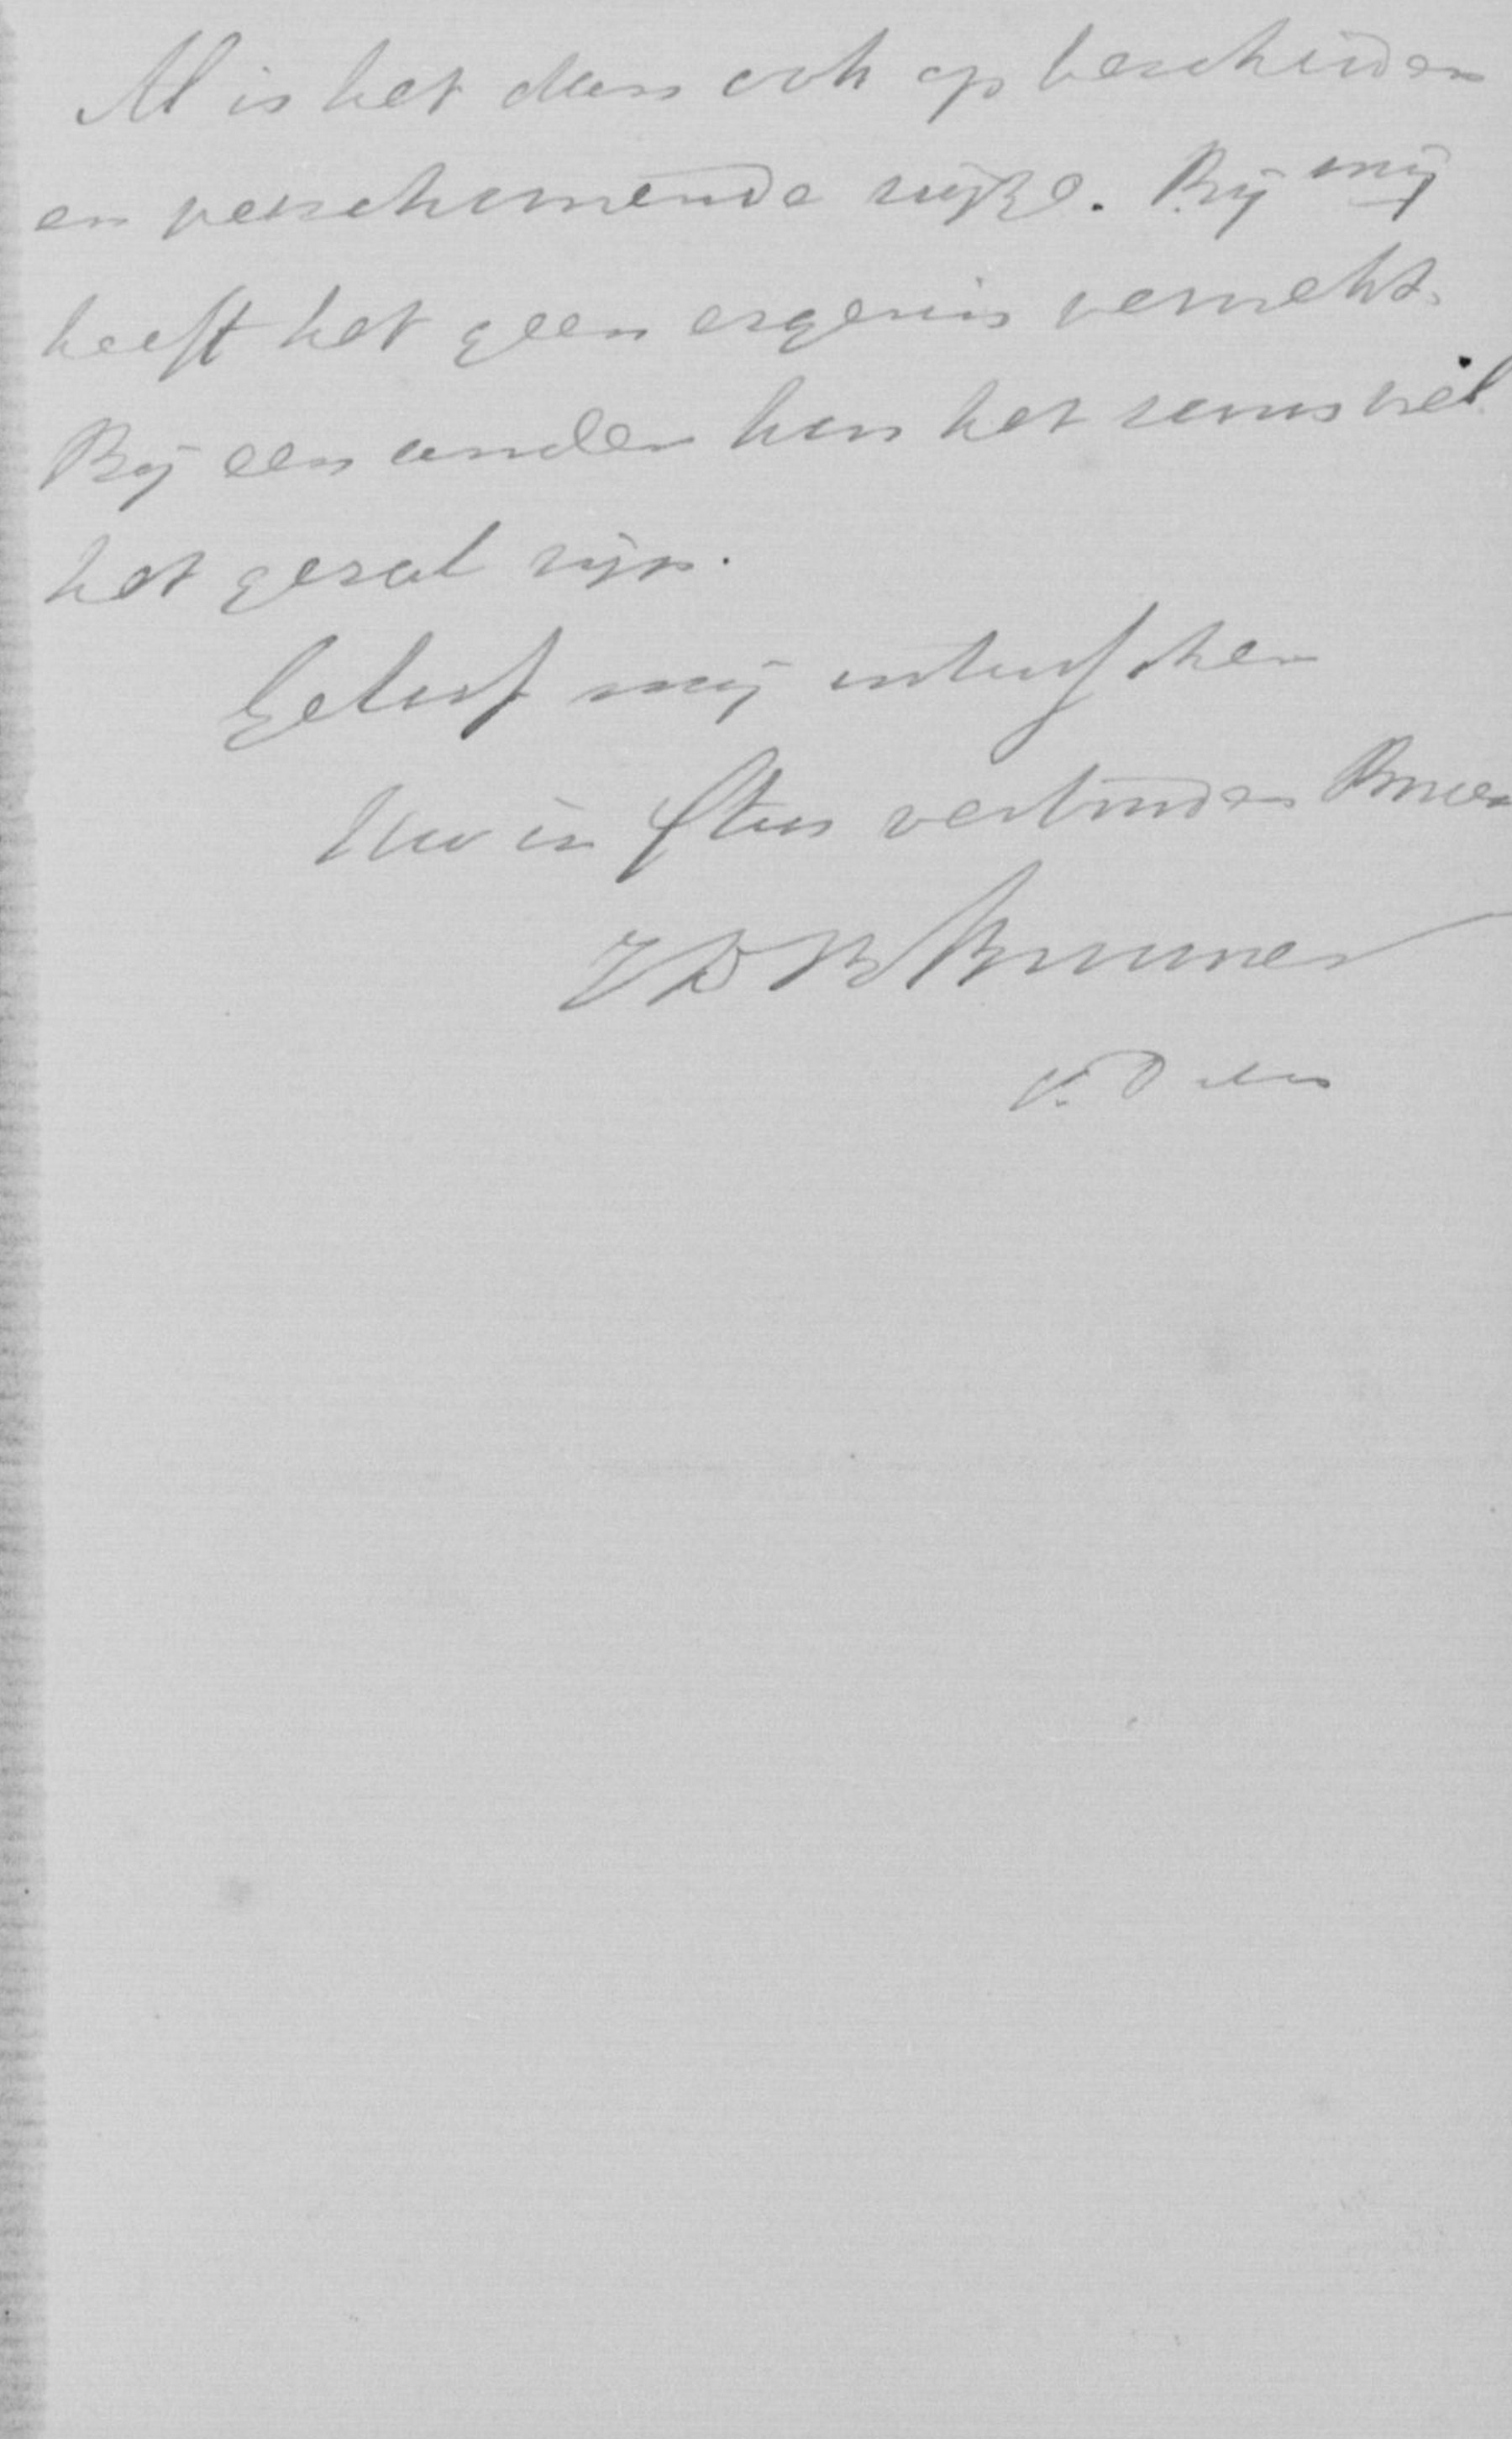 Al is het dan ook op bescheiden
en verschoonende wijze. Bij mij
heeft het geen ergernis verwekt.
Bij een ander kan het soms wel
het geval zijn.
Geloof mij intusschen
Uw in Xtus verbonden Broeder
JDB Brummel